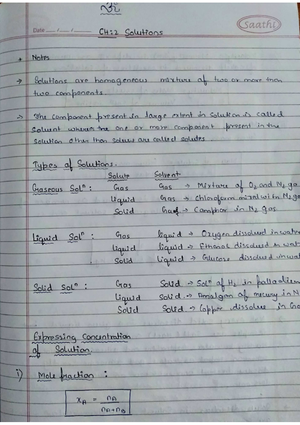 Date
Saathi
CH:2 Solutions
Notes
→ Solutions are homogeneous mixture of two or more than
two components
→ The component present in large extent in solution is called
solvent whereas the one or more component present in the
solution other than solvent are called solutes
Types of Solutions.
Solute Solvent
Gaseous Solⁿ : Gas Gas → Mixture of O₂ and N₂ ga
Liquid Gas → Chloroform mixed with N₂ ga
Solid Gas → Camphor in N₂ gas
Liquid Solⁿ : Gas Liquid → Oxygen dissolved in water
Liquid Liquid → Ethanol dissolved in wat
Solid Liquid → Glucose dissolved in wat
Solid Solⁿ : Gas Solid → Solⁿ of H₂ in palladium
Liquid Solid → Amalgam of mercury in N
Solid Solid → Copper dissolve in Go
Expressing Concentration
of Solution.
i) Mole fraction :
xA = nA
nA + nB